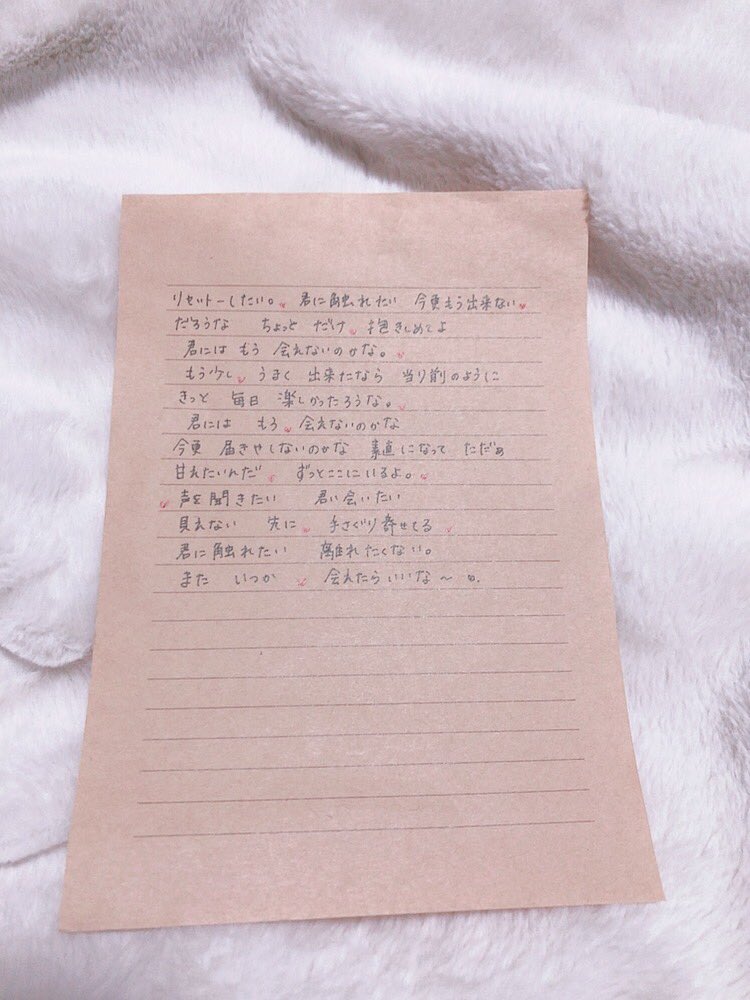 リセットーしたい。 君に触れたい 今更もう出来ない
だろうな ちょっと だけ 抱きしめてよ
君には もう 会えないのかな。
もう少し うまく 出来たなら 当り前のように
きっと 毎日 楽しかったろうな。
君には もう 会えないのかな
今更 届きやしないのかな 素直になって ただぁ
甘えたいんだ ずっとここにいるよ。
声を聞きたい 君い会いたい
見えない 先に 手さぐり寄せてる
君に触れたい 離れたくない。
また いつか 会えたらいいな〜